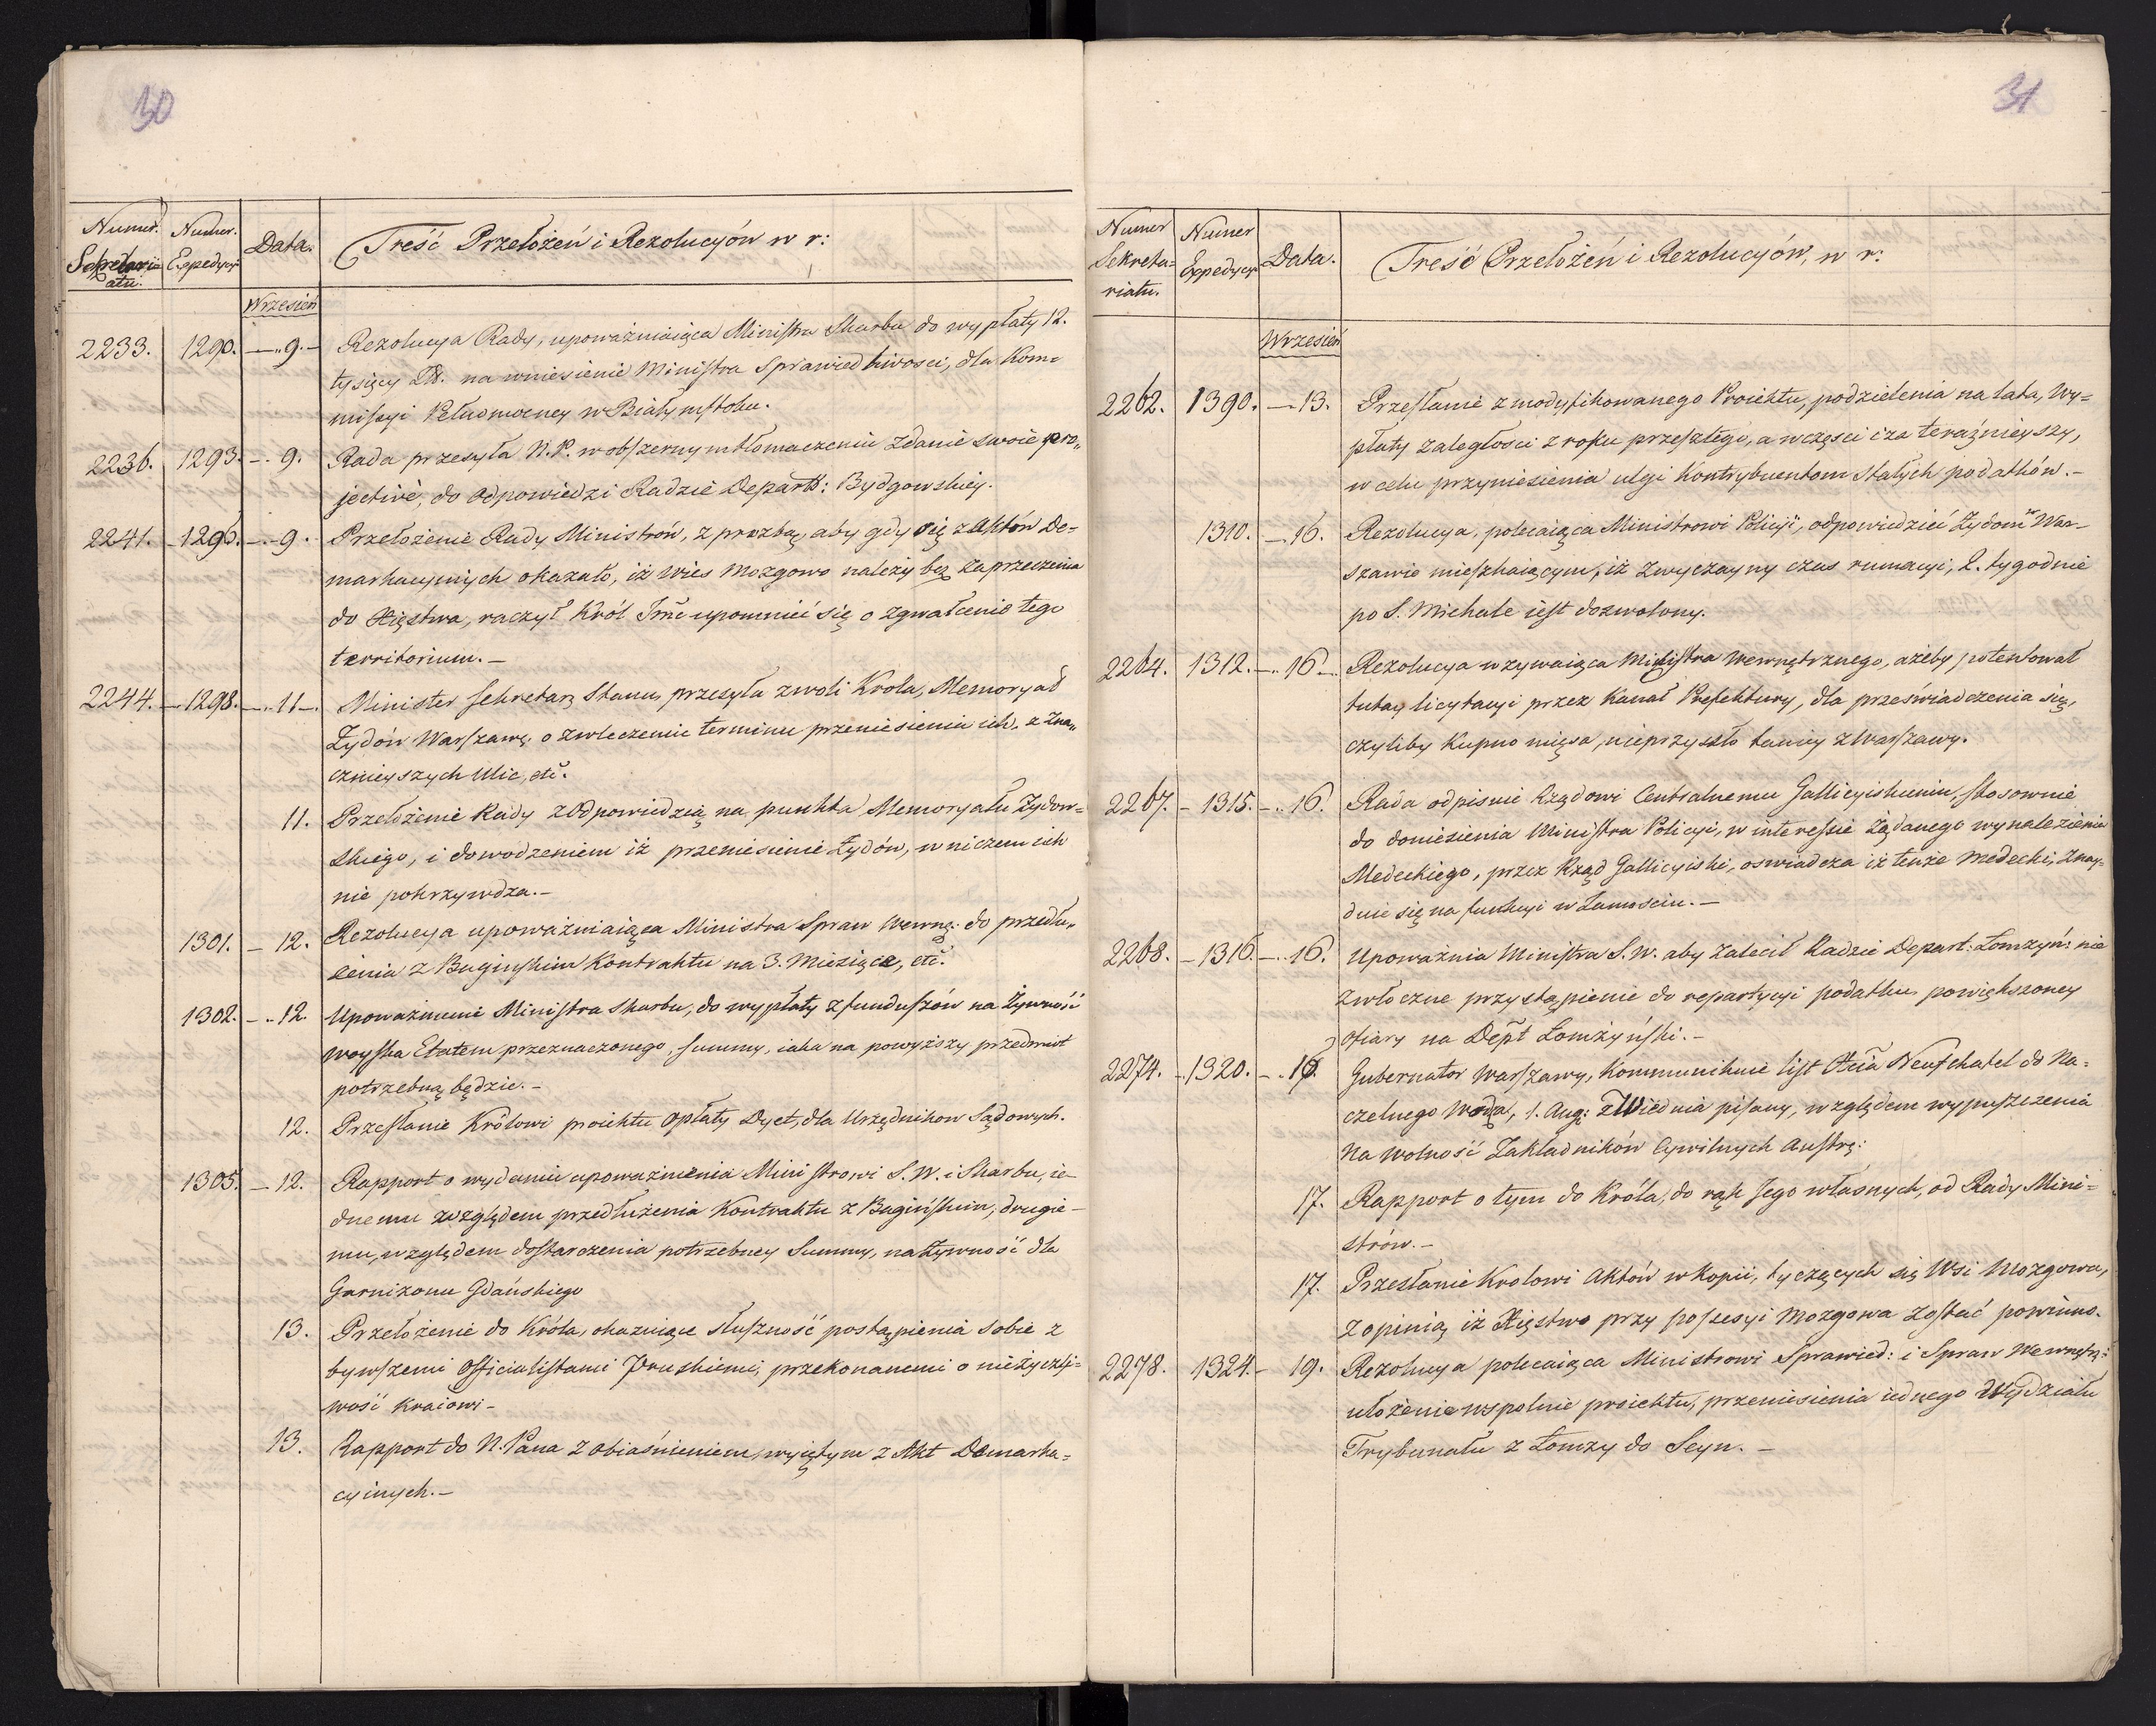 30
Numer. Sekretariatu. Numer. Expedycyi Data. Treść Przełożeń i Rezolucyów w r:
Wrzesień
2233. 1290. — 9. — Rezolucya Rady, upoważniaiąca Ministra Skarbu do wypłaty 12.
tysięcy na wniesienie Ministra Sprawiedliwosci, dla Kom=
missyi Pełnomocney w Białymstoku.
2236. 1293. — 9. Rada przesyła N. P. w obszernym tłomaczeniu zdanie swoie pro„
jectivè, do odpowiedzi Radzie Departt: Bydgowskiey.
2241. — 1296. — 9. Przełożenie Rady Ministrów, z prozbą, aby gdy się z Aktów De=
markacyinych okazało, iż wies Mozgowo należy bez zaprzeczenia
do Xięstwa, raczył Król Jmć upomnieć się o zgwałcenie tego
territorium. —
2244. — 1298. — 11 — Minister Sekretarz Stanu, przesyła z woli Krola, Memoryał
Żydów Warszawy, o zwleczenie terminu przeniesienia ich, z zna„
cznieyszych Ulic, etc.
11. Przełożenie Rady z Odpowiedzią na punkta Memoryału Żydow=
skiego, i dowodzeniem iż przeniesienie Żydów, w niczem ich
nie pokrzywdza. —
1301. — 12. Rezolucya upoważniaiąca Ministra Spraw Wewnę: do przedłu„
żenia z Buginskim Kontraktu na 3. Miesiące, etc.
1302. — 12. Upoważnienie Ministra Skarbu, do wypłaty z funduszów na Żywność
woyska Etatem przeznaczonego, summy, iaka na powyższy przedmiot
potrzebną będzie. —
12. Przesłanie Królowi proiektu opłaty Dyet, dla Urzędnikow Sądowych.
1305. — 12. Rapport o wydaniu upoważnienia Ministrowi S. W. i Skarbu, ie=
dnemu względem przedłużenia Kontraktu z Bugińskim, drugie=
mu, względem dostarczenia potrzebney Summy, na Żywność dla
Garnizonu Gdańskiego
13. Przełożenie do Króla, okazuiące słuszność postąpienia sobie z
bywszemi Officialistami Pruskiemi, przekonanemi o nieżyczli=
wość Kraiowi —
13. Rapport do N. Pana z obiaśnieniem, wyiętym z Akt Demarka=
cyinych. —
31
Numer Sekretariatu. Numer Expedycyi Data. Treść Przełożeń i Rezolucyów, w r:
Wrzesień
2262. 1390. — 13. Przesłanie zmodyfikowanego Proiektu, podzielenia na lata, wy=
płaty zaległości z roku przeszłego, a w części i za teraźnieyszy,
w celu przyniesienia ulgi Kontrybuentom stałych podatków. —
1310. — 16. Rezolucya, polecaiąca Ministrowi Policyi, odpowiedzieć Żydom w War=
szawie mieszkaiącym, iż zwyczayny czas rumacyi, 2. tygodnie
po S. Michale iest dozwolony.
2264. 1312. — 16 — Rezolucya wzywaiąca Ministra Wewnętrznego, ażeby potentował
tutay licytacyi przez Kanał Prefektury, dla przeświadczenia się,
czyliby Kupno mięsa, nieprzyszło taniey z Warszawy.
2267. — 1315. — 16. Rada odpisuie Rządowi Centralnemu Gallicyiskiemu, stosownie
do doniesienia Ministra Policyi, w interessie żądanego wynalezienia
Medeckiego, przez Rząd Gallicyiski, oswiadcza iż tenże Medecki, znay=
duie się na funkcyi w Zamościu. —
2268. — 1316. — 16. Upoważnia Ministra S. W. aby zalecił Radzie Depart: Łomżyń: nie
zwłoczne przystąpienie do repartycyi podatku powiększoney
Ofiary na Dept Łomżyński. —
2274. — 1320. — 16. Gubernator Warszawy, Kommunikuie list Xcia Neufchatel do Na=
czelnego Wodza, 1. Aug: z Wiednia pisany, względem wypuszczenia
na wolność Zakładników Cywilnych Austry:
17. Rapport o tym do Króla, do rąk Jego własnych, od Rady Mini=
strów. —
17. Przesłanie Krolowi Aktów w Kopii, tyczących się Wsi Mozgowa,
z opinią iż Xięstwo przy possesyi Mozgowa zostać powinno.
2278. 1324. — 19. Rezolucya polecaiąca Ministrowi Sprawied: i Spraw Wewnętrz:
ułożenie wspolnie proiektu, przeniesienia iednego Wydziału
Trybunału z Łomzy do Seyn. —